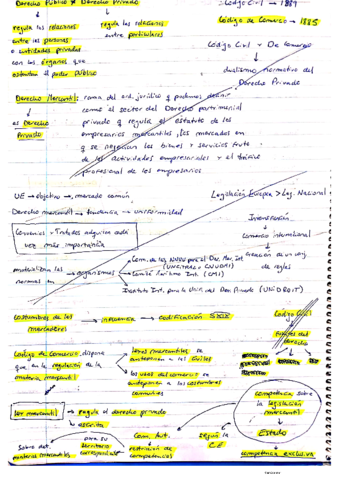 Derecho Público ≠ Derecho Privado
Código Civil → 1889
regula las relaciones
entre las personas
o entidades privadas
con los órganos que
ostentan el poder público
regula las relaciones
entre particulares
Código de Comercio → 1885
Código Civil y De Comercio
dualismo normativo del
Derecho Privado
Derecho Mercantil: rama del ord. jurídico q podemos definir
como el sector del Derecho patrimonial
privado q regula el estatuto de los
empresarios mercantiles, los mercados en
q se negocian los bienes y servicios fruto
de las actividades empresariales y el tráfico
profesional de los empresarios
es Derecho
Privado
UE → objetivo → mercado común
Legislación Europea > Leg. Nacional
Derecho mercantil → tendencia → UNIFORMIDAD
Convenios y Tratados adquiren cada
vez más importancia
Intensificación
Comercio internacional
creación de un conj.
de reglas
materializan las
normas en
organismos
Com. de las NNUU para el Dro. Mer. Int
(UNCITRAL o CNUDMI)
Comité Marítimo Int. (CMI)
Instituto Int. para la Unif. del Der. Privado (UNIDROIT)
costumbres de los
mercaderes
→ influencia → codificación SXIX
Código Civil
Fuentes del
derecho
Código de Comercio, dispone
que, en la regulación de la
materia mercantil
leyes mercantiles se
anteponen a las civiles
los usos del comercio se
anteponen a las costumbres
comunes
ley mercantil
→ regula el derecho privado
→ escrita
competencia sobre
la legislación
mercantil
Estado
competencia exclusiva
Sobre det.
materias mercantiles
para su
territorio
correspondiente
Com. Aut.
restricción de
competencias
según la
C.E